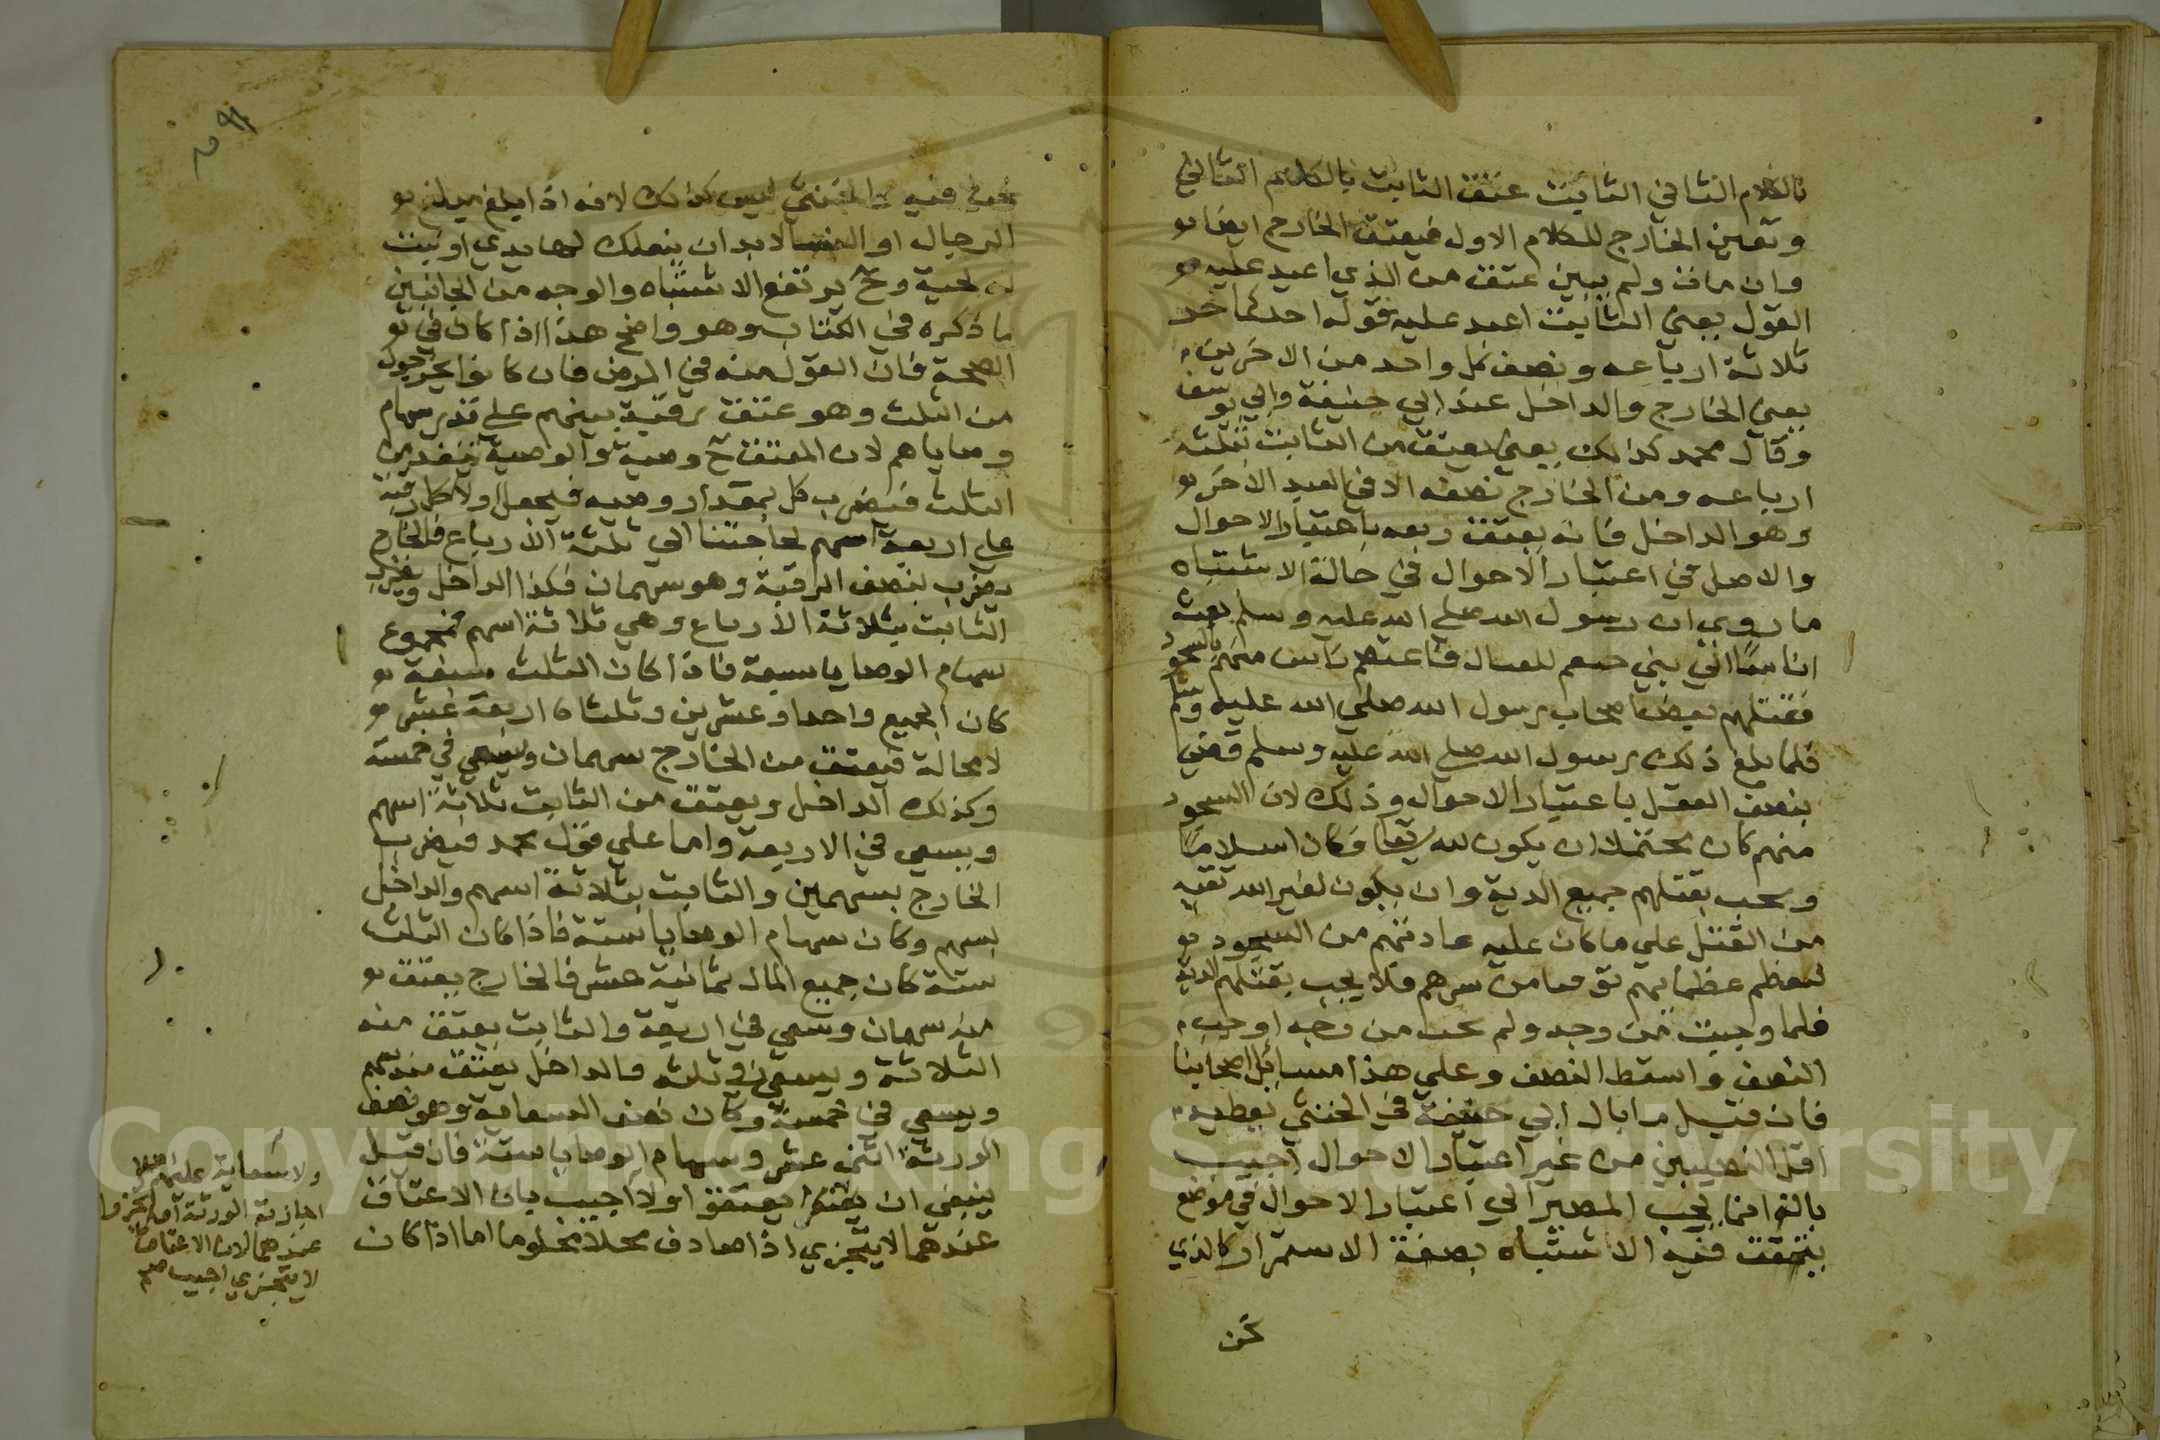 بالكلام الثاني الثابت عتق الثابت بالكلام الثاني
وتعين الخارج للكلام الاول فيعتق الخارج ايضا
وان مات ولم يبين عتق من الذي اعيد عليه
القول يعني الثابت اعيد عليه قوله احدكما حر
ثلاثة ارباعه ونصف كل واحد من الاخرين
يعني الخارج والداخل عند ابي حنيفة وابي يوسف
وقال محمد كذلك يعني يعتق من الثابت ثلثة
ارباعه ومن الخارج نصفه الا في العبد الاخر
وهو الداخل فانه يعتق ربعه باعتبار الاحوال
والاصل في اعتبار الاحوال في حالة الاشتباه
ما روي ان رسول الله صلى الله عليه وسلم بعث
اناسا الى بني خثعم للقتال فاعتصم ناس منهم بالسجود
فقتلهم بعض اصحاب رسول الله صلى الله عليه وسلم
فلما بلغ ذلك رسول الله صلى الله عليه وسلم قضى
بنصف العقل باعتبار الاحوال وذلك لان السجود
منهم كان محتملا ان يكون لله تعالى فكان اسلاما
ويجب بقتلهم جميع الدية وان يكون لغير الله تقية
من القتل على ما كان عليه عادتهم من السجود
لتعظيم عظمايهم توقيا من شرهم فلا يجب بقتلهم الدية
فلما وجبت من وجه ولم يجب من وجه اوجب
النصف واسقط النصف وعلى هذا مسائل اصحابنا
فان قيل ما بال ابي حنيفة في الخنثي يعطيه
اقل النصيبين من غير اعتبار الاحوال اجيب
بانه انما يجب المصير الى اعتبار الاحوال في موضع
يتحقق فيه الاشتباه بصفة الاستمرار كالذي
نحن فيه والخنثي ليس كذلك لانه اذا بلغ مبلغ
الرجال او النسا لابد ان يتفلك لها ثدي او نبت
له لحية وح يرتفع الاشتباه والوجه من الجانبين
ما ذكره في الكتاب وهو واضح هذا اذا كان في
الصحة فان كان القول منه في المرض فان كانوا يخرجون
من الثلث وهو عتق رقبة بينهم على قدر سهام
وصاياهم لان العتق ح وصية والوصية تنفذ من
الثلث فيضرب كل بمقدار وصيه فيجعل اولا كل رقبة
على اربعة اسهم لحاجتنا الى ثلثة الارباع فالخارج
يضرب بنصف الرقبة وهو سهمان فكذا الداخل ويضرب
الثابت بثلاثة الارباع وهي ثلاثة اسهم فمجموع
سهام الوصايا سبعة فاذا كان الثلث سبعة
كان الجميع واحدا وعشرين وثلثاه اربعة عشر
لا محالة فيعتق من الخارج سهمان ويسعى في خمسة
وكذلك الداخل ويعتق من الثابت ثلاثة اسهم
ويسعى في الاربعة واما على قول محمد فيضرب
الخارج بسهمين والثابت بثلاثة اسهم والداخل
بسهم وكان سهام الوصايا ستة فاذا كان الثلث
ستة كان جميع المال ثمانية عشر فالخارج يعتق
منه سهمان ويسعى في اربعة والثابت يعتق منه
الثلاثة ويسعى في ثلثه والداخل يعتق منه سهم
ويسعى في خمسة وكان نصيب السعاية وهو نصيب
الورثة اثني عشر وسهام الوصايا ستة فان قيل
ينبغي ان يعتق اولا اجيب بان الاعتاق
عندهما لا يتجزي اذا صادف محلا معلوما اما اذا كان
ولا سعاية عليهم
اجازته الورثة او لم يجيزوا
عندهما لان الاعتاق
لا يتجزي اجيب صح